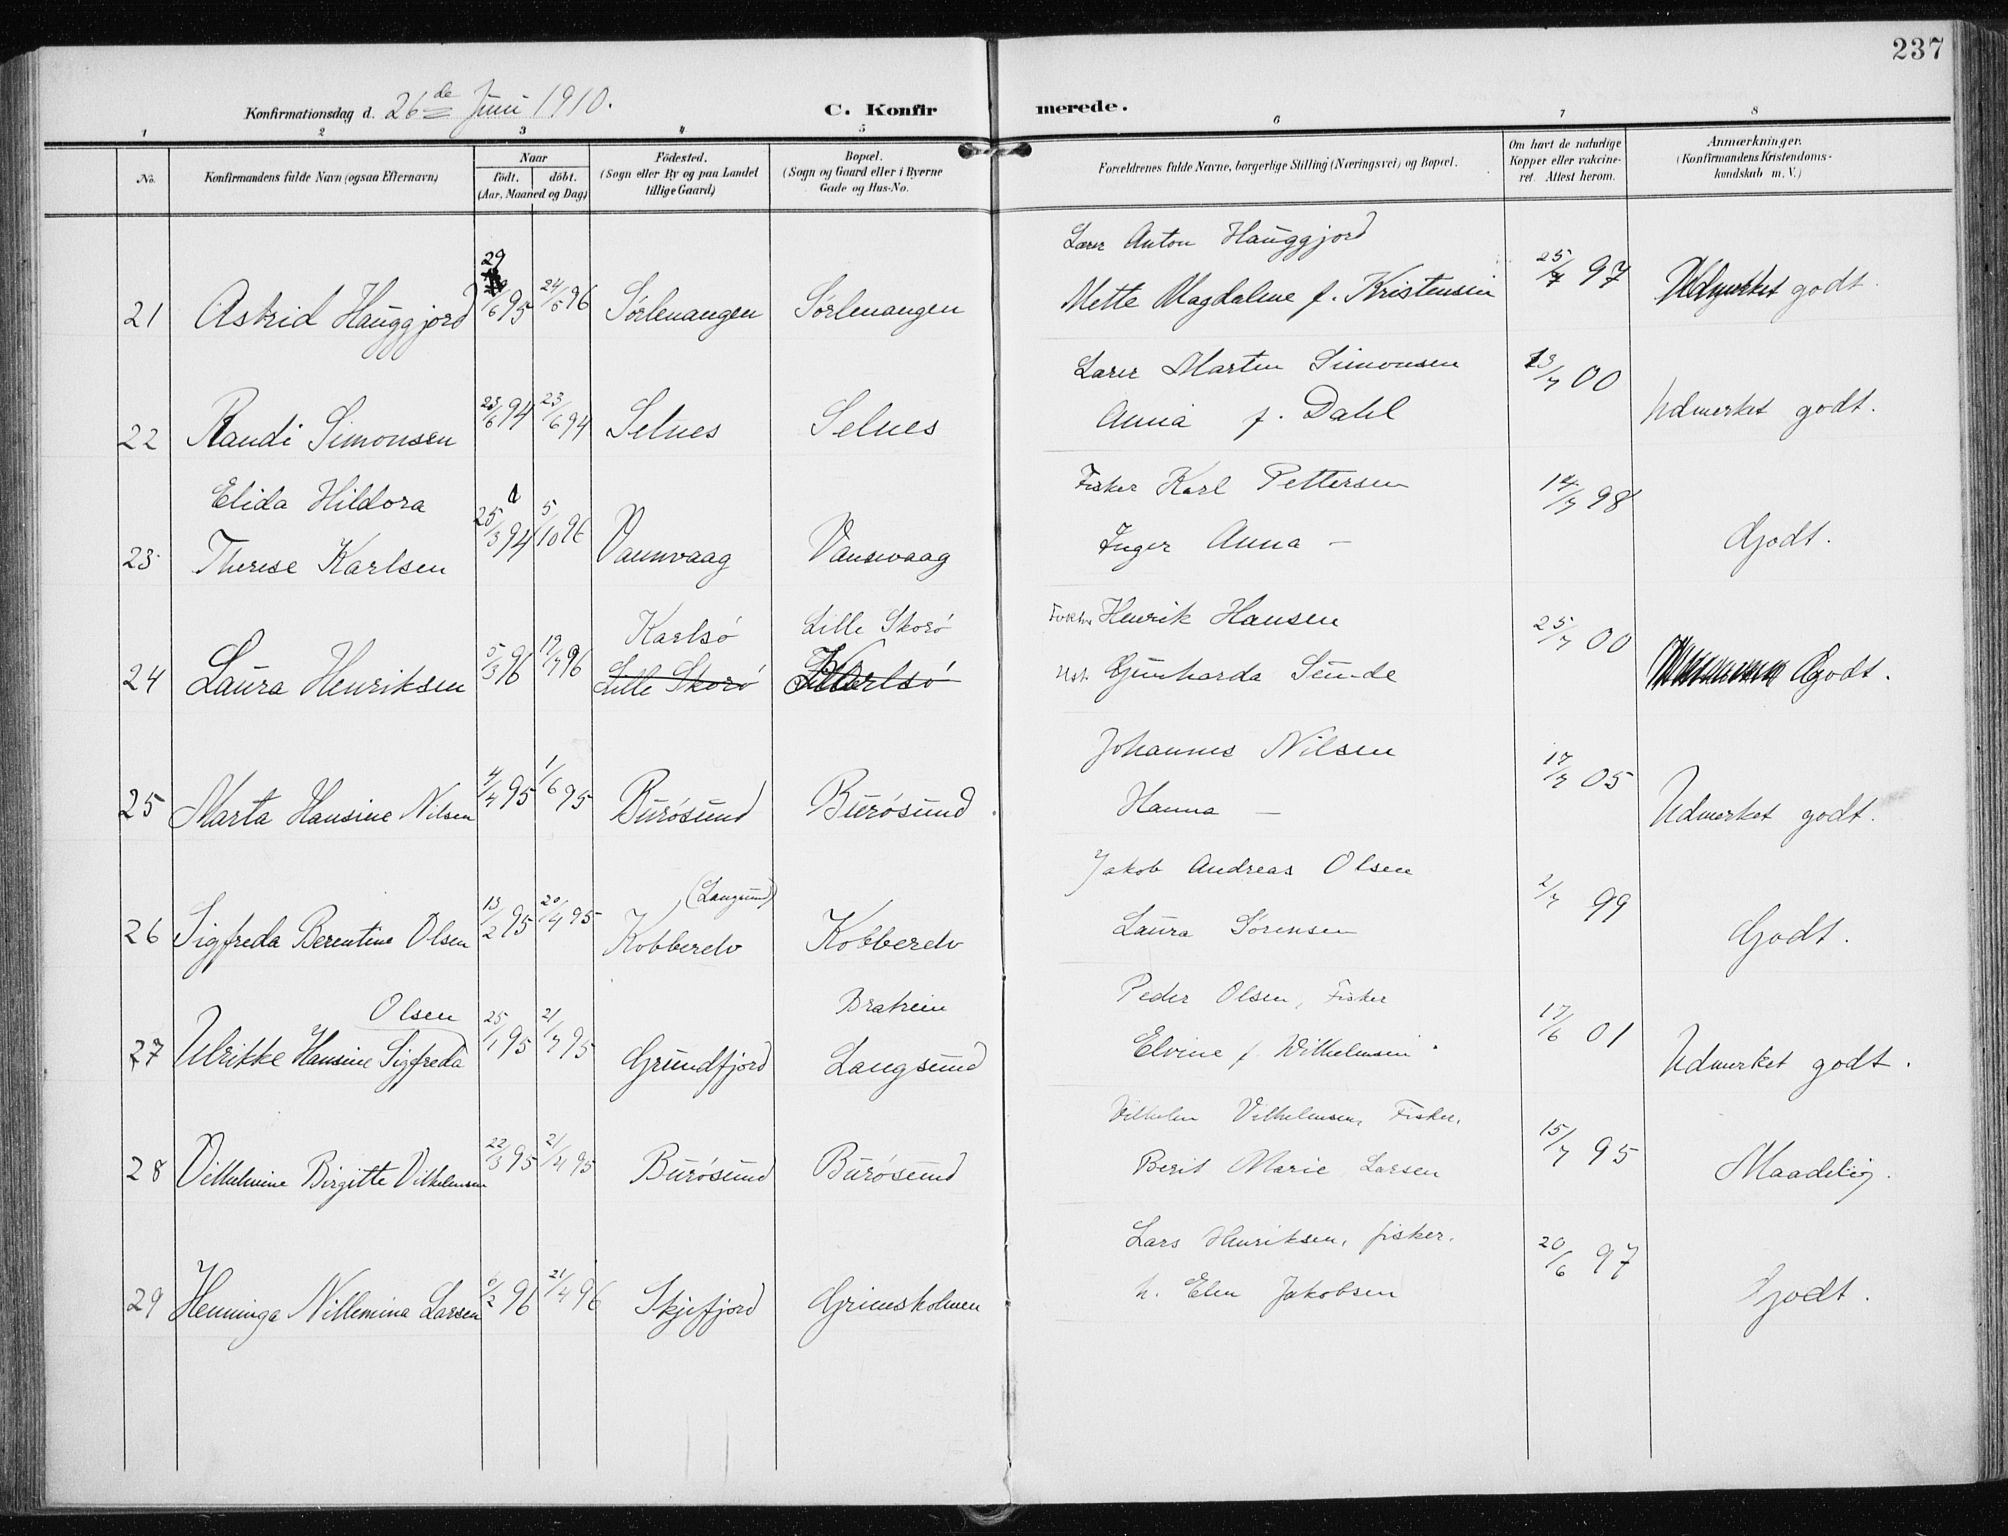 237
Konfirmationsdag d. 26de Juni 1910. C. Konfir merede.
1 2 3 4 5 6 7 8
No. Konfirmandens fulde Navn (ogsaa Efternavn) Naar født. døbt. (Aar, Maaned og Dag) Fødested. (Sogn eller By og paa Landet tillige Gaard) Bopæl. (Sogn og Gaard eller i Byerne Gade og Hus-No. Forældrenes fulde Navne, borgerlige Stilling (Næringsvei) og Bopæl. Om havt de naturlige Kopper eller vakcineret. Attest herom. Anmærkninger. (Konfirmandens Kristendomskundskab m. V.)
Lærer Anton Hauggjord
21 Astrid Hauggjord 29/6 95 24/5 96 Sørlenangen Sørlenangen Mette Magdalene f. Kristensen 25/7 97 Udmerket godt.
Lærer Martin Simonsen
22 Randi Simonsen 23/6 94 23/6 94 Selnes Selnes Anna f. Dahl 13/7 00 Udmerket godt.
Elida Hildora Fisker Karl Pettersen
23 Therese Karlsen 25/3 94 5/10 96 Vannvaag Vannvaag Inger Anna — 14/7 98 Godt.
Karlsö Lille Skorö Henrik Hansen
24 Laura Henriksen 5/3 96 19/7 96 Lille Skorö Karlsö Ust. Gunharda Sunde 25/7 00 Godt.
Johannes Nilsen
25 Marta Hansine Nilsen 4/4 95 1/6 95 Burøsund Burøsund Hanna — 17/7 05 Udmerket godt.
(Langsund) Jakob Andreas Olsen
26 Sigfreda Berentine Olsen 13/2 95 20/4 95 Kobberelv Kobberelv Laura Sørensen 2/7 99 Godt.
Olsen Bratrein Peder Olsen, Fisker
27 Ulrikke Hansine Sigfreda 25/1 95 21/7 95 Grundfjord Langsund Elvine f. Wilhelmsen 17/6 01 Udmerket godt.
Vilhelm Vilhelmsen, Fisker.
28 Vilhelmine Birgitte Vilhelmsen 22/3 95 21/4 95 Burøsund Burøsund Berit Marie Larsen 15/7 95 Maadelig.
Lars Henriksen, fisker.
29 Henninga Nillemina Larsen 6/2 96 21/4 96 Skjefjord Grimsholmen h. Elen Jakobsen 20/6 97 Godt.